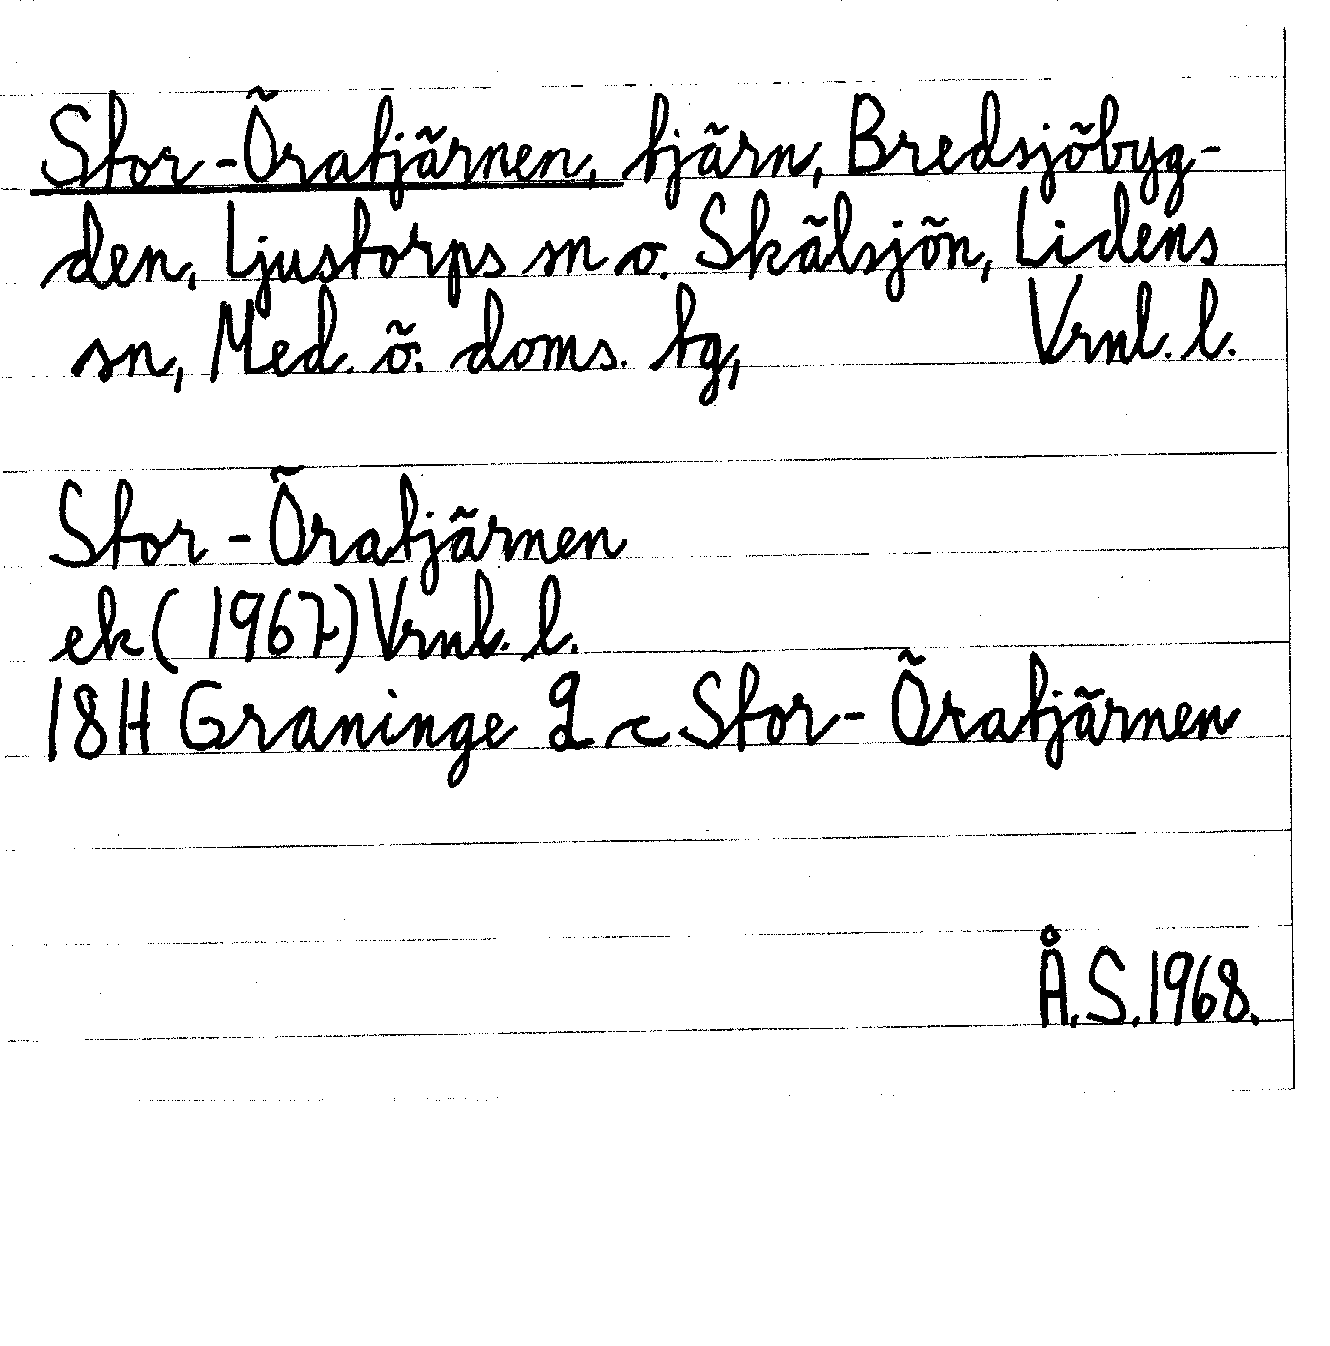 Stor-Öratjärnen, tjärn, Bredsjöbyg-
den, Ljustorps sn o. Skälsjön, Lidens
sn, Med. ö. doms. tg, Vrnl. l.
Stor-Öratjärnen
ek (1967) Vrnl. l.
18H Graninge 2 c Stor-Öratjärnen
Å.S.1968.